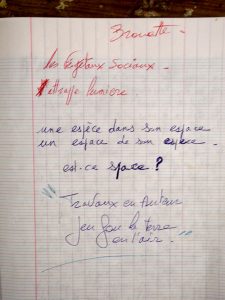 Brouette -
Les Végétaux Sociaux -
Attrape lumière.
une espèce dans son espace
un espace de son espèce.
est-ce space ?
" Travaux en hauteur
jeu fou la terre
en l'air. "